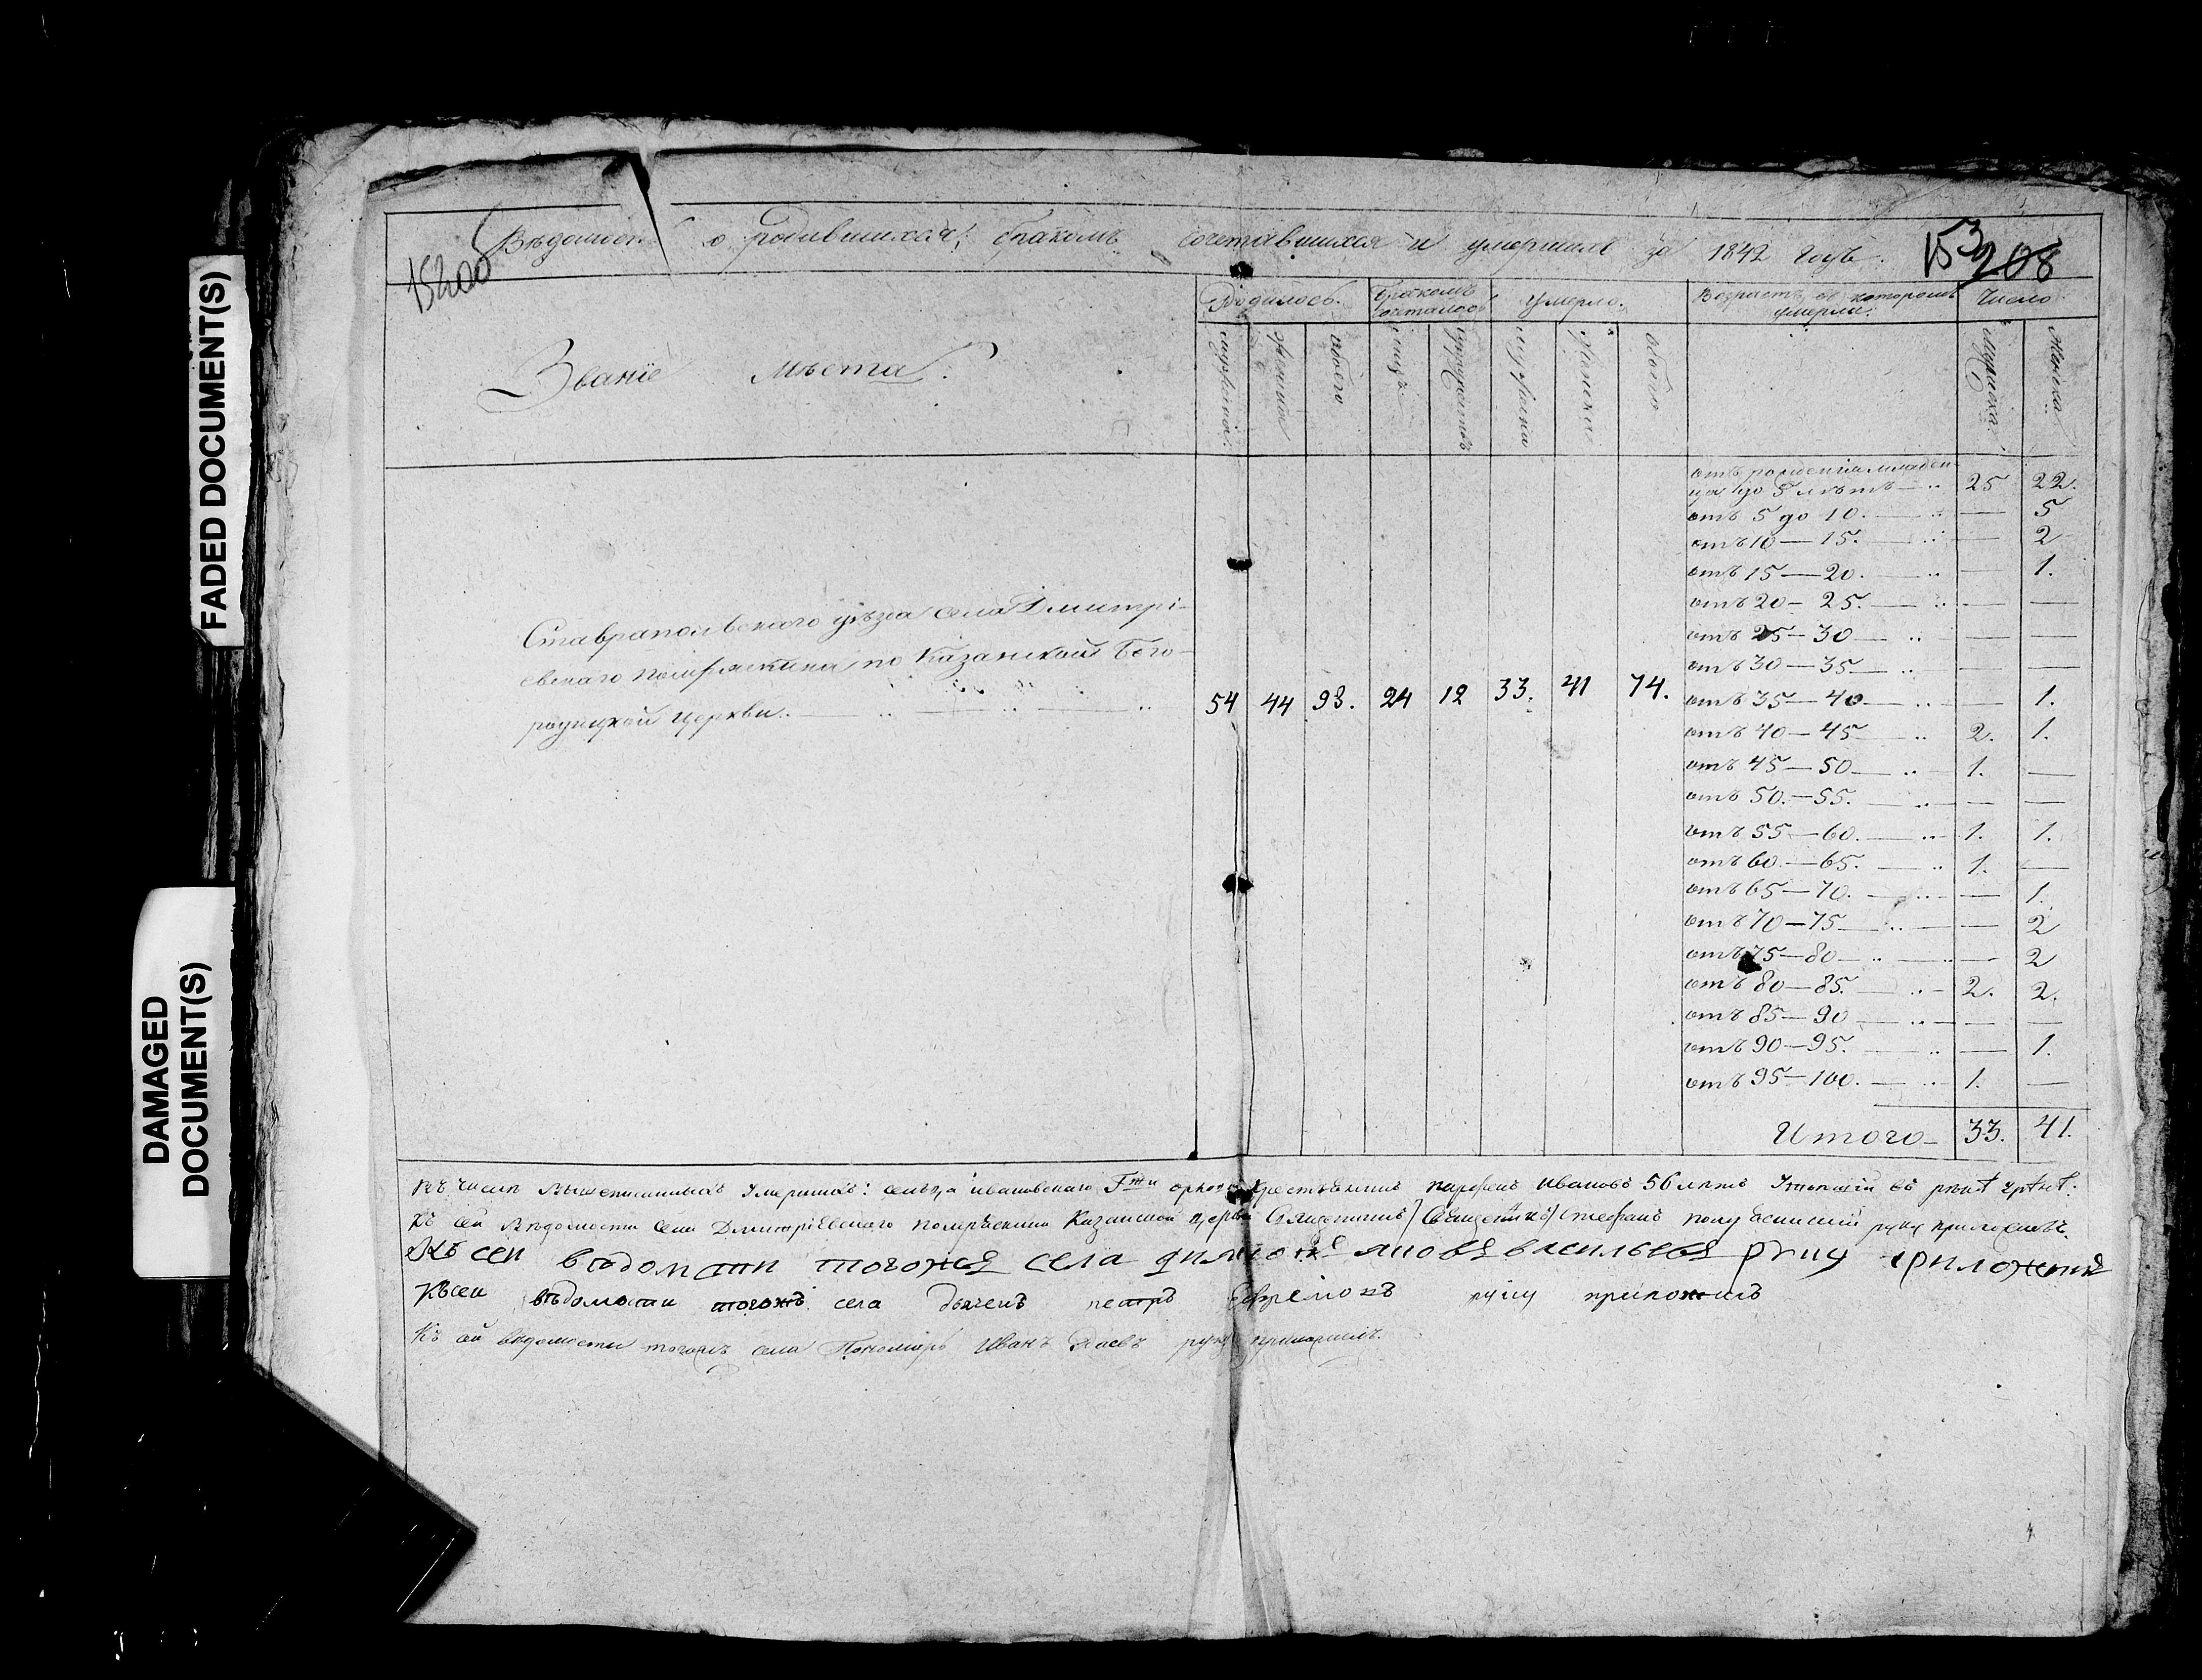 FADED DOCUMENT(S)
DAMAGED
DOCUMENT(S)
Вѣдомость о родившихся, бракомъ сочетавшихся и умершихъ за 1842 годъ.
153
208
Званіе мѣста.
Родилось. Бракомъ сочеталось Умерло. Возрастъ, въ которомъ умерли. Число
мужска. женска обоего лицъ супружествъ мужска женска обоего мужеска женска
Ставрапольвскаго уѣзда села Дмитрі-
евскаго по Казанской Бого-
родицкой церкви.
54 44 98. 24 12 33. 41 74.
отъ рожденія младен
ца до 5 лѣтъ 25 22.
отъ 5 до 10. — 5
отъ 10 — 15. — 2
отъ 15 — 20. — 1.
отъ 20 — 25. — —
отъ 25 — 30 — —
отъ 30 — 35 — —
отъ 35 — 40 — 1.
отъ 40 — 45 2. 1.
отъ 45 — 50 1. —
отъ 50. — 55. — —
отъ 55 — 60. 1. 1.
отъ 60. — 65. 1. —
отъ 65 — 70. — 1.
отъ 70 — 75 — 2
отъ 75 — 80 — 2
отъ 80 — 85. 2. 2.
отъ 85 — 90 — —
отъ 90 — 95. — 1.
отъ 95 — 100. 1. —
Итого 33. 41.
Въ числѣ вышеписанныхъ умершихъ: сельца ивановскаго Гжи крестьянинъ парфенъ Ивановъ 56 лѣтъ въ
Къ сей вѣдомости села Дмитріевскаго Казанской церкви Священникъ Стефанъ руку приложилъ.
Къ сей вѣдомости тогоже села васильевъ руку приложилъ
Къ сей вѣдомости тогожъ села дьячекъ петръ руку приложилъ
Къ сей вѣдомости тогожъ села Пономарь Иванъ руку приложилъ.